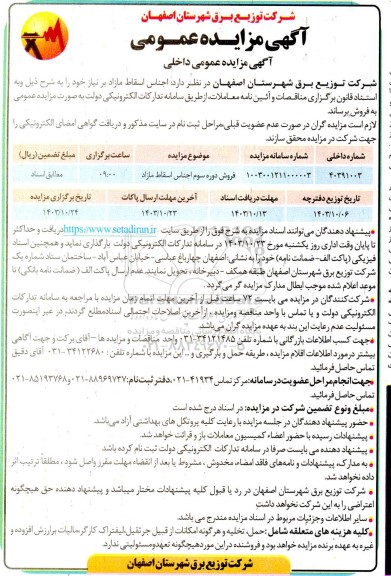 شرکت توزیع برق شهرستان اصفهان
آگهی مزایده عمومی
آگهی مزایده عمومی داخلی
شرکت توزیع برق شهرستان اصفهان در نظر دارد: اجناس اسقاط مازاد بر نیاز خود را به شرح ذیل وبه
استناد قانون برگزاری مناقصات و آئین نامه معاملات، ازطریق سامانه تدارکات الکترونیکی دولت به صورت مزایده عمومی
به فروش برساند.
لازم است مزایده گران در صورت عدم عضویت قبلی، مراحل ثبت نام در سایت مذکور و دریافت گواهی امضای الکترونیکی را
جهت شرکت در مزایده محقق سازند.
شماره داخلی شماره سامانه مزایده موضوع مزایده ساعت برگزاری مبلغ تضمین (ریال)
۴۰۳۹۱۰۰۳ ۱۰۰۳۰۰۱۲۱۱۰۰۰۰۰۳ فروش دوره سوم اجناس اسقاط مازاد ۰۹:۰۰ مطابق اسناد
تاریخ توزیع دفترچه مهلت دریافت اسناد آخرین مهلت ارسال پاکات تاریخ برگزاری مزایده
۱۴۰۳/۱۰/۰۶ ۱۴۰۳/۱۰/۱۳ ۱۴۰۳/۱۰/۲۳ ۱۴۰۳/۱۰/۲۴
پیشنهاد دهندگان می‌توانند اسناد مزایده به شرح فوق را از طریق سایت https://www.setadiran.ir دریافت و حداکثر
تا پایان وقت اداری روز یکشنبه مورخ ۱۴۰۳/۱۰/۲۳ در سامانه تدارکات الکترونیکی دولت بارگذاری نماید و همچنین اسناد
فیزیکی (پاکت الف-ضمانت نامه) خود را به نشانی: اصفهان چهارباغ عباسی - خیابان عباس آباد - ساختمان ستاد شماره یک
شرکت توزیع برق شهرستان اصفهان طبقه همکف - دبیرخانه، تحویل نمایند. عدم ارسال پاکت الف (ضمانت نامه بانکی) تا
موعد اعلام شده موجب ابطال مدارک مزایده گر می‌گردد.
شرکت‌کنندگان در مزایده می بایست ۷۲ ساعت قبل از آخرین مهلت اتمام زمان مزایده با مراجعه به سامانه تدارکات
الکترونیکی دولت و یا تماس با واحد مناقصه ومزایده، از آخرین اصلاحات احتمالی اسناد مطلع گردند، در غیر اینصورت
مسئولیت عدم رعایت این بند به عهده مزایده گران می باشد.
جهت کسب اطلاعات بازرگانی با شماره تلفن ۳۴۱۲۱۴۸۵-۰۳۱ واحد مناقصات و مزایده ها - آقای برکت و جهت آگاهی
بیشتر درمورد اطلاعات اقلام مزایده، طریقه حمل و بارگیری و... این مزایده با شماره تلفن: ۳۴۱۲۲۶۸۰-۰۳۱ آقای دقیق
تماس حاصل فرمائید.
جهت انجام مراحل عضویت در سامانه: مرکز تماس ۴۱۹۳۴-۰۲۱ دفتر ثبت نام: ۸۸۹۶۹۷۳۷-۰۲۱ و ۸۵۱۹۳۷۶۸-۰۲۱
تماس حاصل فرمائید.
مبلغ ونوع تضمین شرکت در مزایده: در اسناد درج شده است
حضور پیشنهاد دهندگان در جلسه مزایده با رعایت کلیه پروتکل های بهداشتی آزاد می باشد.
پیشنهادات رسیده با حضور اعضاء کمیسیون معاملات باز و قرائت خواهد شد.
پیشنهاد دهنده می بایست صرفا در سامانه تدارکات الکترونیکی دولت ثبت نام کرده باشد
به مدارک، پیشنهادات و نامه های فاقد امضاء، مخدوش، مشروط یا بعد از انقضاء مهلت مقرر واصل شود، مطلقاً ترتیب اثر
داده نخواهد شد.
شرکت توزیع برق شهرستان اصفهان در رد یا قبول کلیه پیشنهادات مختار میباشد و پیشنهاد دهنده حق هیچگونه
اعتراضی را به این شرکت نخواهد داشت
سایر اطلاعات وجزئیات مربوط در اسناد مزایده مندرج می باشد.
کلیه هزینه های متعلقه شامل: حمل، تخلیه و هرگونه امکانات از قبیل جرثقیل، لیفتراک، کارگر، مالیات برارزش افزوده و
غیره به عهده برنده مزایده خواهد بود و فروشنده دراین مورد هیچگونه تعهد و مسئولیتی ندارد.
شرکت توزیع برق شهرستان اصفهان